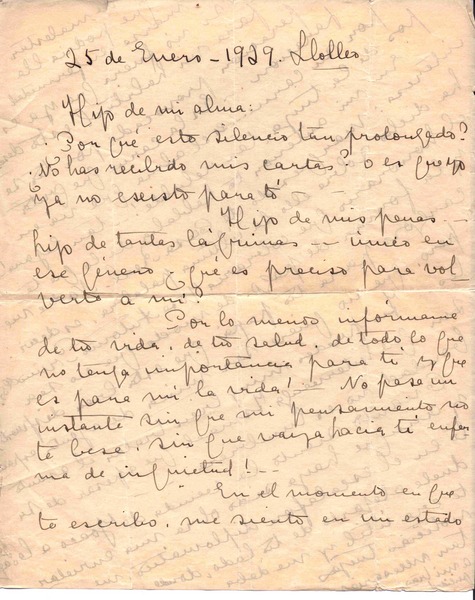 25 de Enero - 1929. Llolleo
Hijo de mi alma:
¿Por qué este silencio tan prolongado?
¿No has recibido mis cartas? o es que yo
ya no eseisto para tí —
Hijo de mis penas —
hijo de tantas lágrimas — único en
ese género — ¿qué es preciso para vol-
verte a mí?
Por lo menos infórmame
de tu vida, de tu salud, de todo lo que
no tenga importancia para ti y que
es para mí la vida! — No pasa un
instante sin que mi pensamiento no
te bese, sin que vaya hacia tí enfer-
ma de inquietud! —
En el momento en que
te escribo, me siento en un estado